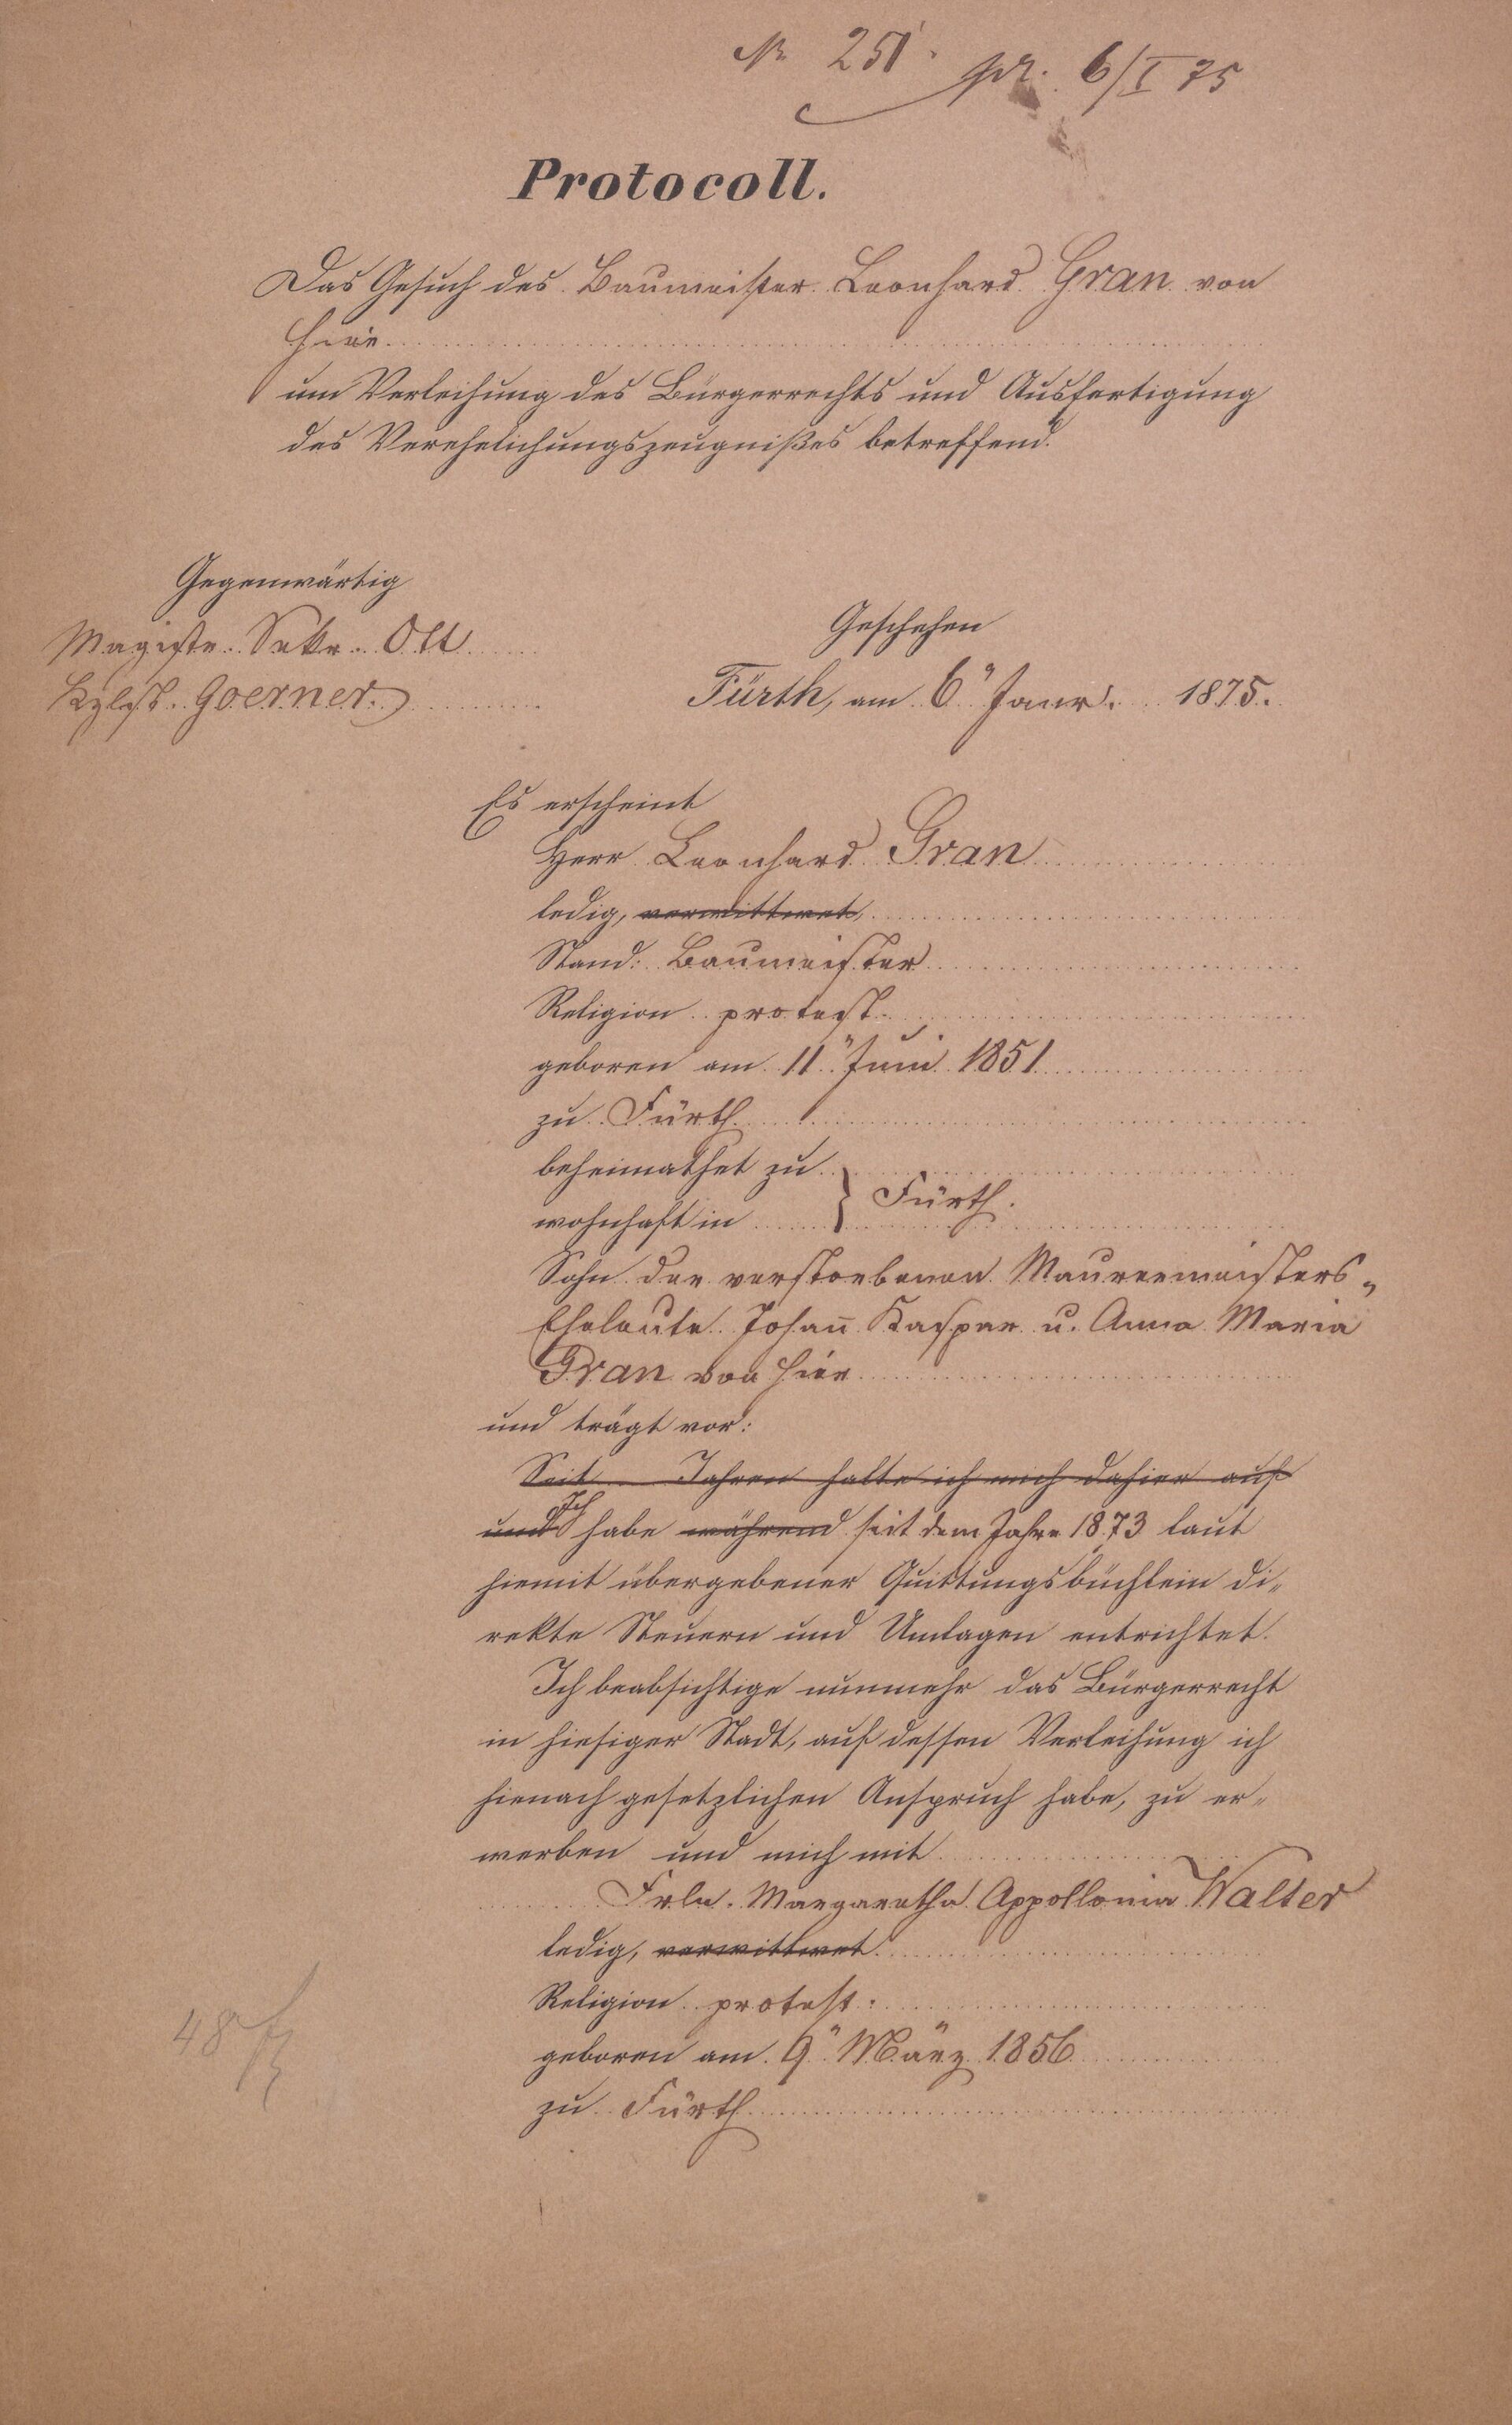 Nr. 251. pr. 6/I 75
Protocoll.
Das Gesuch des Baumeister Leonhard Gran von
hier
um Verleihung des Bürgerrechts und Ausfertigung
des Verehelichungszeugnißes betreffend.
Gegenwärtig
Magistr. Sekr. Ott
Kzlst. Goerner
Geschehen
Fürth, am 6" Janr. 1875.
Es erscheint
Herr Leonhard Gran
ledig, verwittwet,
Stand: Baumeister
Religion protest.
geboren am 11" Juni 1851
zu Fürth
beheimathet zu
wohnhaft in } Fürth.
Sohn der verstorbenen Maurermeisters-
Eheleute Johann Kaspar u. Anna Maria
Gran von hier
und trägt vor:
Seit Jahren halte ich mich dahier auf
und Ich habe während seit dem Jahre 1873 laut
hiemit übergebener Quittungsbüchlein di-
rekte Steuern und Umlagen entrichtet.
Ich beabsichtige nunmehr das Bürgerrecht
in hiesiger Stadt, auf dessen Verleihung ich
hienach gesetzlichen Anspruch habe, zu er-
werben und mich mit
Frln. Margaretha Appollonia Walter
ledig, verwittwet
Religion protest.
geboren am 9" März 1856
zu Fürth
48